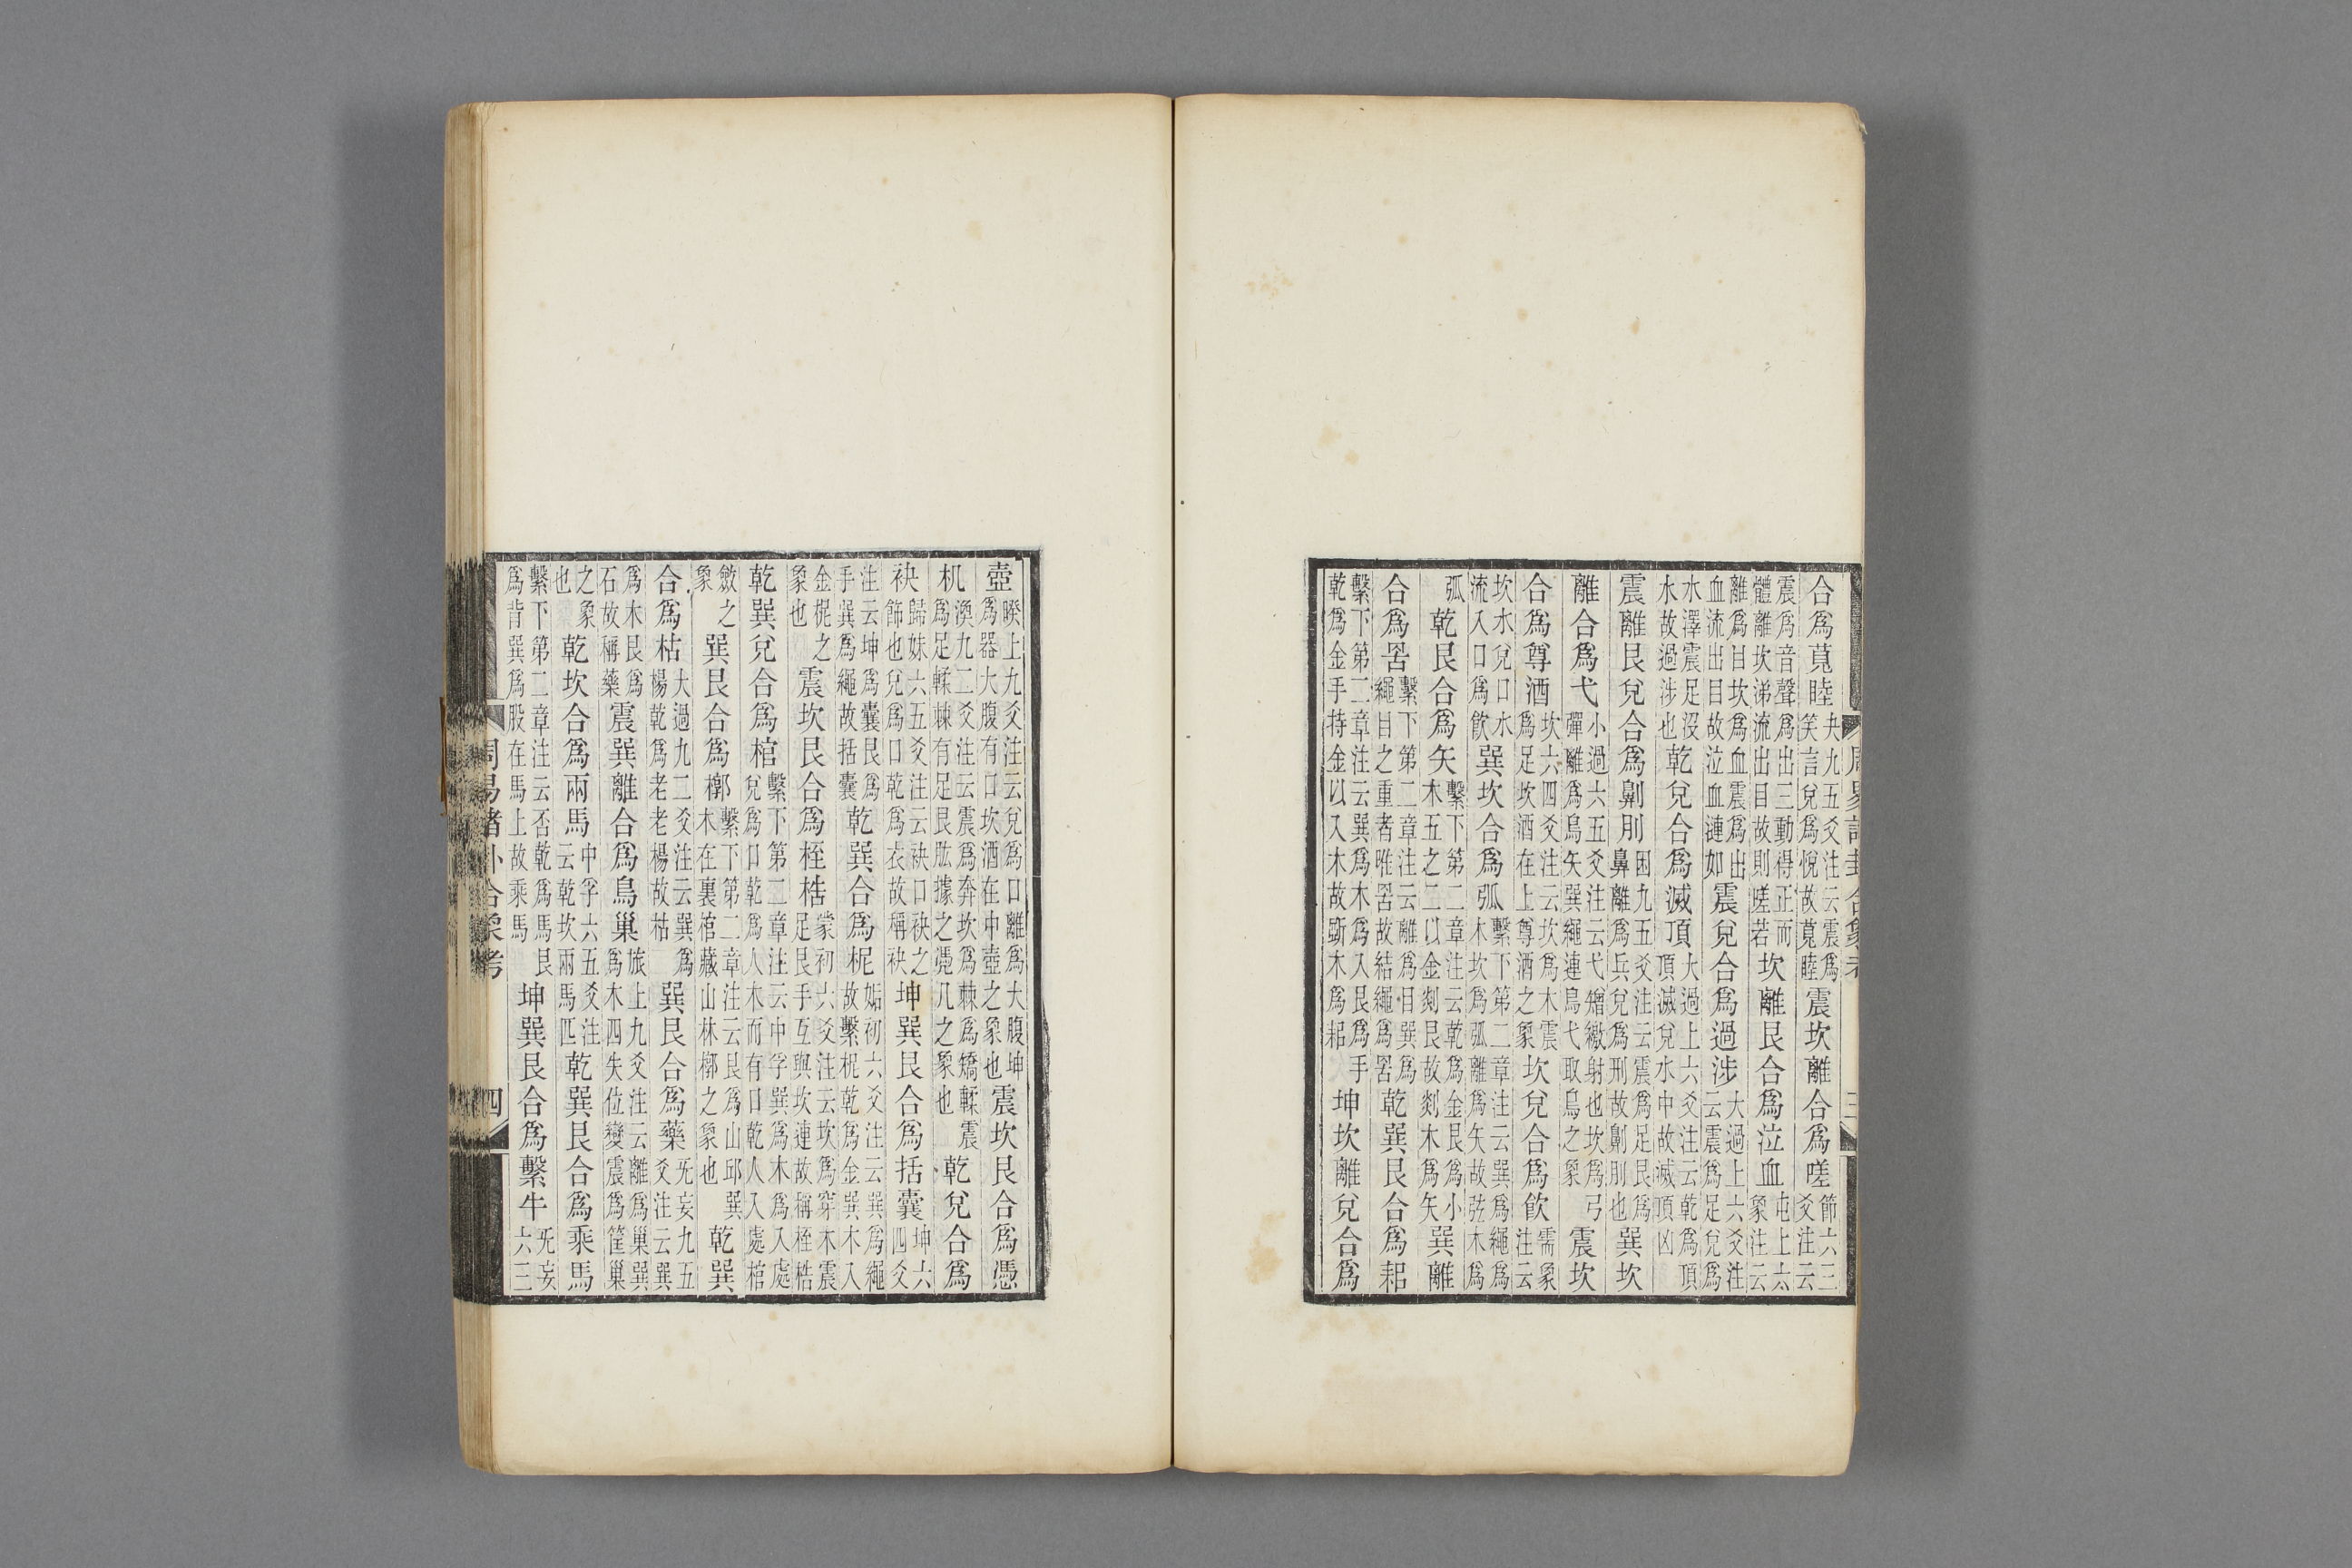 合爲莧睦夬九五爻注云震爲笑言兌爲悅故莧睦震坎離合爲嗟節六三爻注云
震爲音聲爲出三動得正而體離坎涕流出目故則嗟若坎離艮合爲泣血屯上六象注云
離爲目坎爲血震爲出血流出目故泣血漣如震兌合爲過涉大過上六爻注云震爲足兌爲
水澤震足沒水故過涉也乾兌合爲滅頂大過上六爻注云乾爲頂頂滅兌水中故滅頂凶
震離艮兌合爲劓刖困九五爻注云震爲足艮爲鼻離爲兵兌爲刑故劓刖也巽坎
離合爲弋小過六五爻注云弋矰繳射也坎爲弓彈離爲鳥矢巽繩連鳥弋取鳥之象震坎
合爲尊酒坎六四爻注云坎爲木震爲足坎酒在上尊酒之象坎兌合爲飮需象注云
坎水兌口水流入口爲飮巽坎合爲弧繫下第二章注云巽爲繩爲木坎爲弧離爲矢故弦木爲
弧乾艮合爲矢繫下第二章注云乾爲金艮爲小木五之二以金剡艮故剡木爲矢巽離
合爲罟繫下第二章注云離爲目巽爲繩目之重者唯罟故結繩爲罟乾巽艮合爲耜
繫下第二章注云巽爲木爲入艮爲手乾爲金手持金以入木故斵木爲耜坤坎離兌合爲
周易諸卦合象考 三
壺睽上九爻注云兌爲口離爲大腹坤爲器大腹有口坎酒在中壺之象也震坎艮合爲憑
机渙九二爻注云震爲奔坎爲棘爲矯輮震爲足輮棘有足艮肱據之憑几之象也乾兌合爲
袂歸妹六五爻注云袂口袂之飾也兌爲口乾爲衣故稱袂坤巽艮合爲括囊坤六四爻
注云坤爲囊艮爲手巽爲繩故括囊乾巽合爲柅姤初六爻注云巽爲繩故繫柅乾爲金巽木入
金柅之象也震坎艮合爲桎梏蒙初六爻注云坎爲穿木震足艮手互與坎連故稱桎梏
乾巽兌合爲棺繫下第二章注云中孚巽爲木爲入處兌爲口乾爲人木而有口乾人入處棺
斂之象巽艮合爲槨繫下第二章注云艮爲山邱巽木在裏棺藏山林槨之象也乾巽
合爲枯楊大過九二爻注云巽爲楊乾爲老老楊故枯巽艮合爲藥无妄九五爻注云巽
爲木艮爲石故稱藥震巽離合爲鳥巢旅上九爻注云離爲巢巽爲木四失位變震爲筐巢
之象也乾坎合爲兩馬中孚六五爻注云乾坎兩馬匹乾巽艮合爲乘馬
繫下第二章注云否乾爲馬艮爲背巽爲股在馬上故乘馬坤巽艮合爲繫牛无妄六三
周易諸卦合象考 四